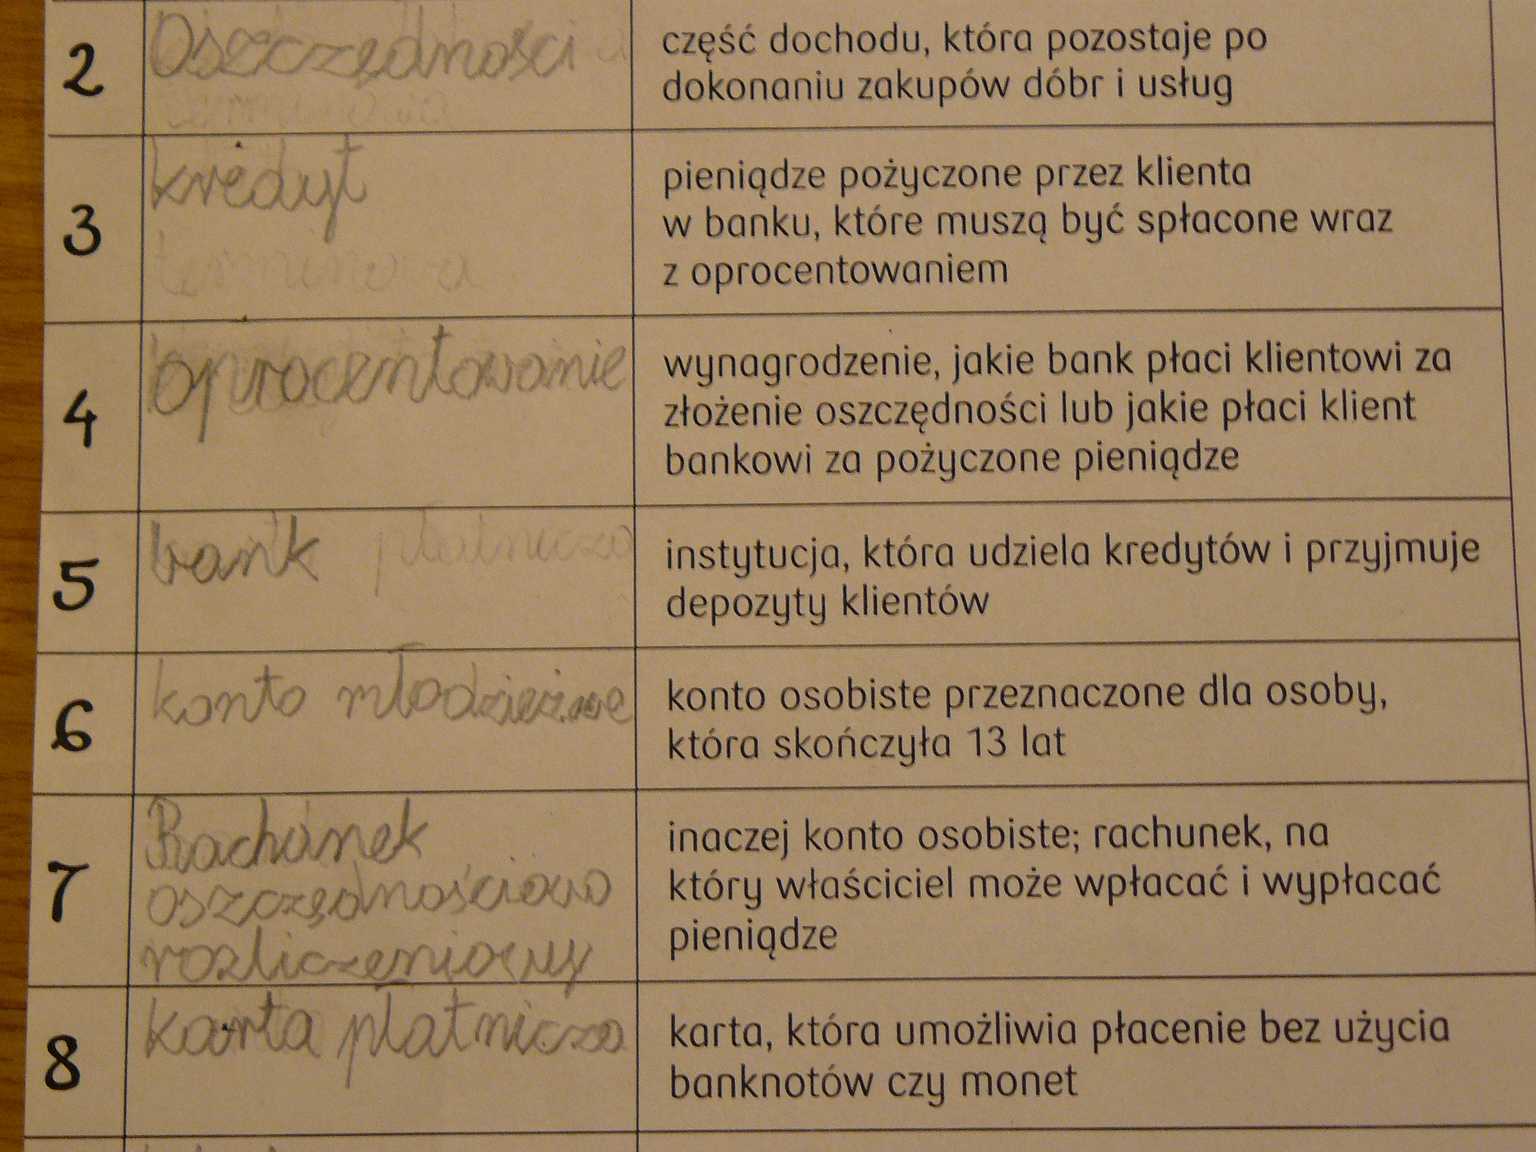 2
Oszczędności
część dochodu, która pozostaje po
dokonaniu zakupów dóbr i usług
3
kredyt
pieniądze pożyczone przez klienta
w banku, które muszą być spłacone wraz
z oprocentowaniem
4
oprocentowanie
wynagrodzenie, jakie bank płaci klientowi za
złożenie oszczędności lub jakie płaci klient
bankowi za pożyczone pieniądze
5
bank płatnicza
instytucja, która udziela kredytów i przyjmuje
depozyty klientów
6
konto młodzieżowe
konto osobiste przeznaczone dla osoby,
która skończyła 13 lat
7
Rachunek
oszczędnościowo
rozliczeniowy
inaczej konto osobiste; rachunek, na
który właściciel może wpłacać i wypłacać
pieniądze
8
karta płatnicza
karta, która umożliwia płacenie bez użycia
banknotów czy monet